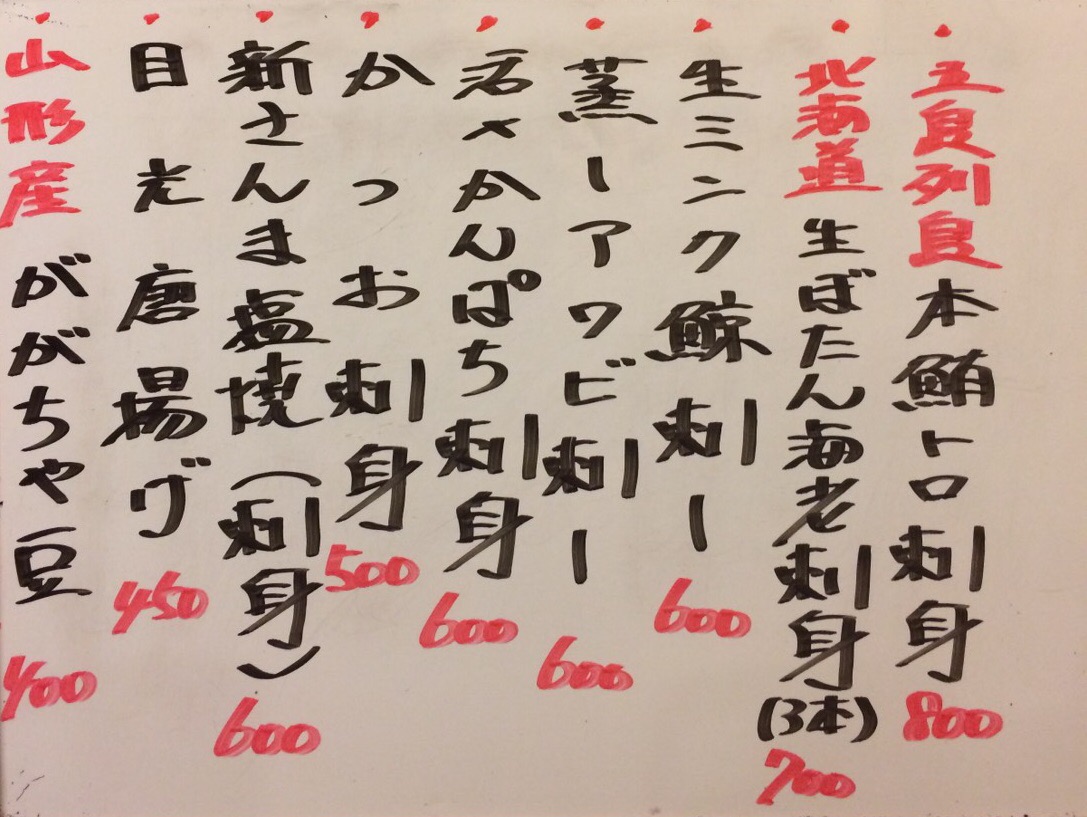 五良列良 本鮪トロ刺身 800
北海道 生ぼたん海老刺身(3本) 700
生ミンク鯨刺ー 600
蒸ーアワビ刺ー 600
活〆かんぱち刺身 600
かつお刺身 500
新さんま塩焼(刺身) 600
目光唐揚げ 450
山形産 ががちゃ豆 400